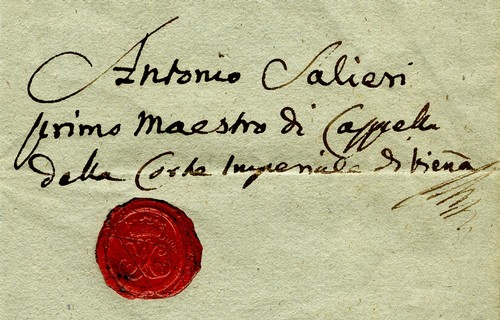 Antonio Salieri
primo Maestro di Cappella
della Corte Imperiale di Vienna